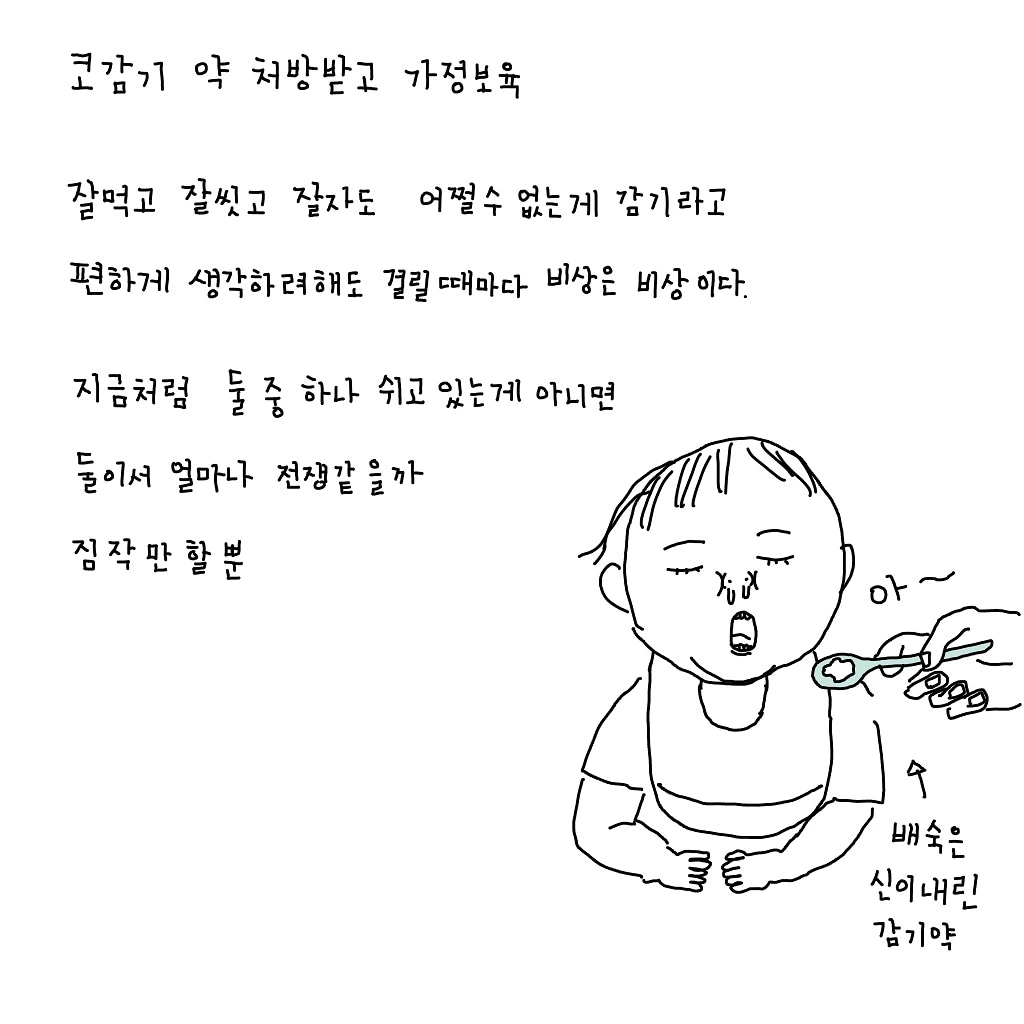 코감기 약 처방받고 가정보육
잘먹고 잘씻고 잘자도 어쩔수 없는게 감기라고
편하게 생각하려해도 걸릴때마다 비상은 비상이다.
지금처럼 둘 중 하나 쉬고있는게 아니면
둘이서 얼마나 전쟁같을까
짐작만할뿐
아~
↑
배숙은
신이내린
감기약